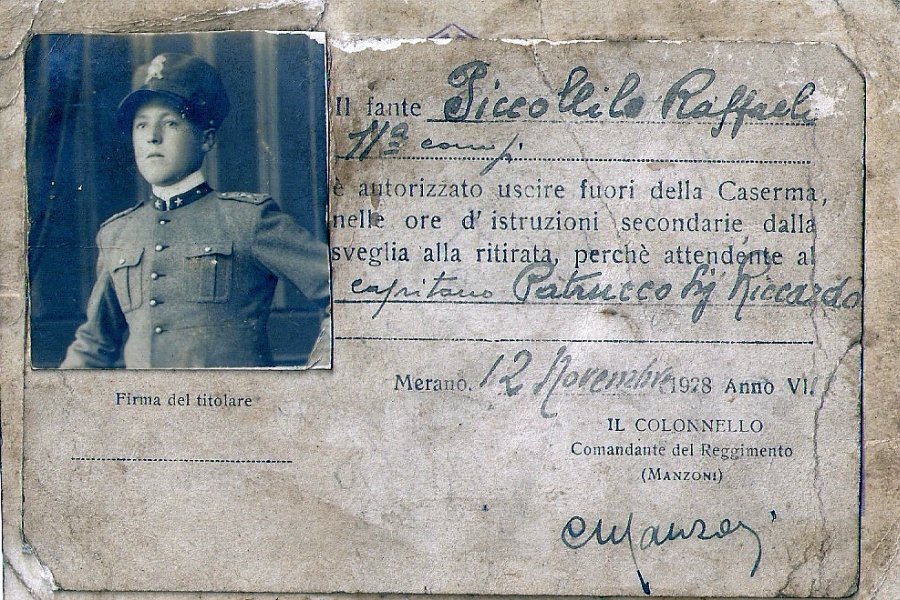 Il fante Piccollilo Raffaele
11ª comp.
è autorizzato uscire fuori della Caserma,
nelle ore d'istruzioni secondarie dalla
sveglia alla ritirata, perchè attendente al
capitano Patrucco Sig Riccardo
Merano, 12 Novembre 1928 Anno VII
Firma del titolare
IL COLONNELLO
Comandante del Reggimento
(MANZONI)
CManzoni